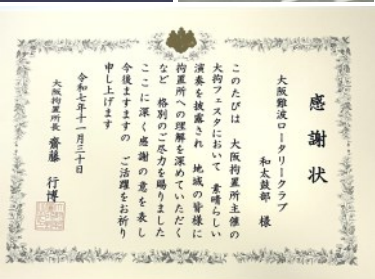 感謝状
大阪難波ロータリークラブ
和太鼓部 様
このたびは 大阪拘置所主催の
大拘フェスタにおいて 素晴らしい
演奏を披露され 地域の皆様に
拘置所への理解を深めていただく
など 格別のご尽力を賜りました
ここに深く感謝の意を表し
今後ますますの ご活躍をお祈り
申し上げます
令和七年十一月三十日
大阪拘置所長 齋藤 行博